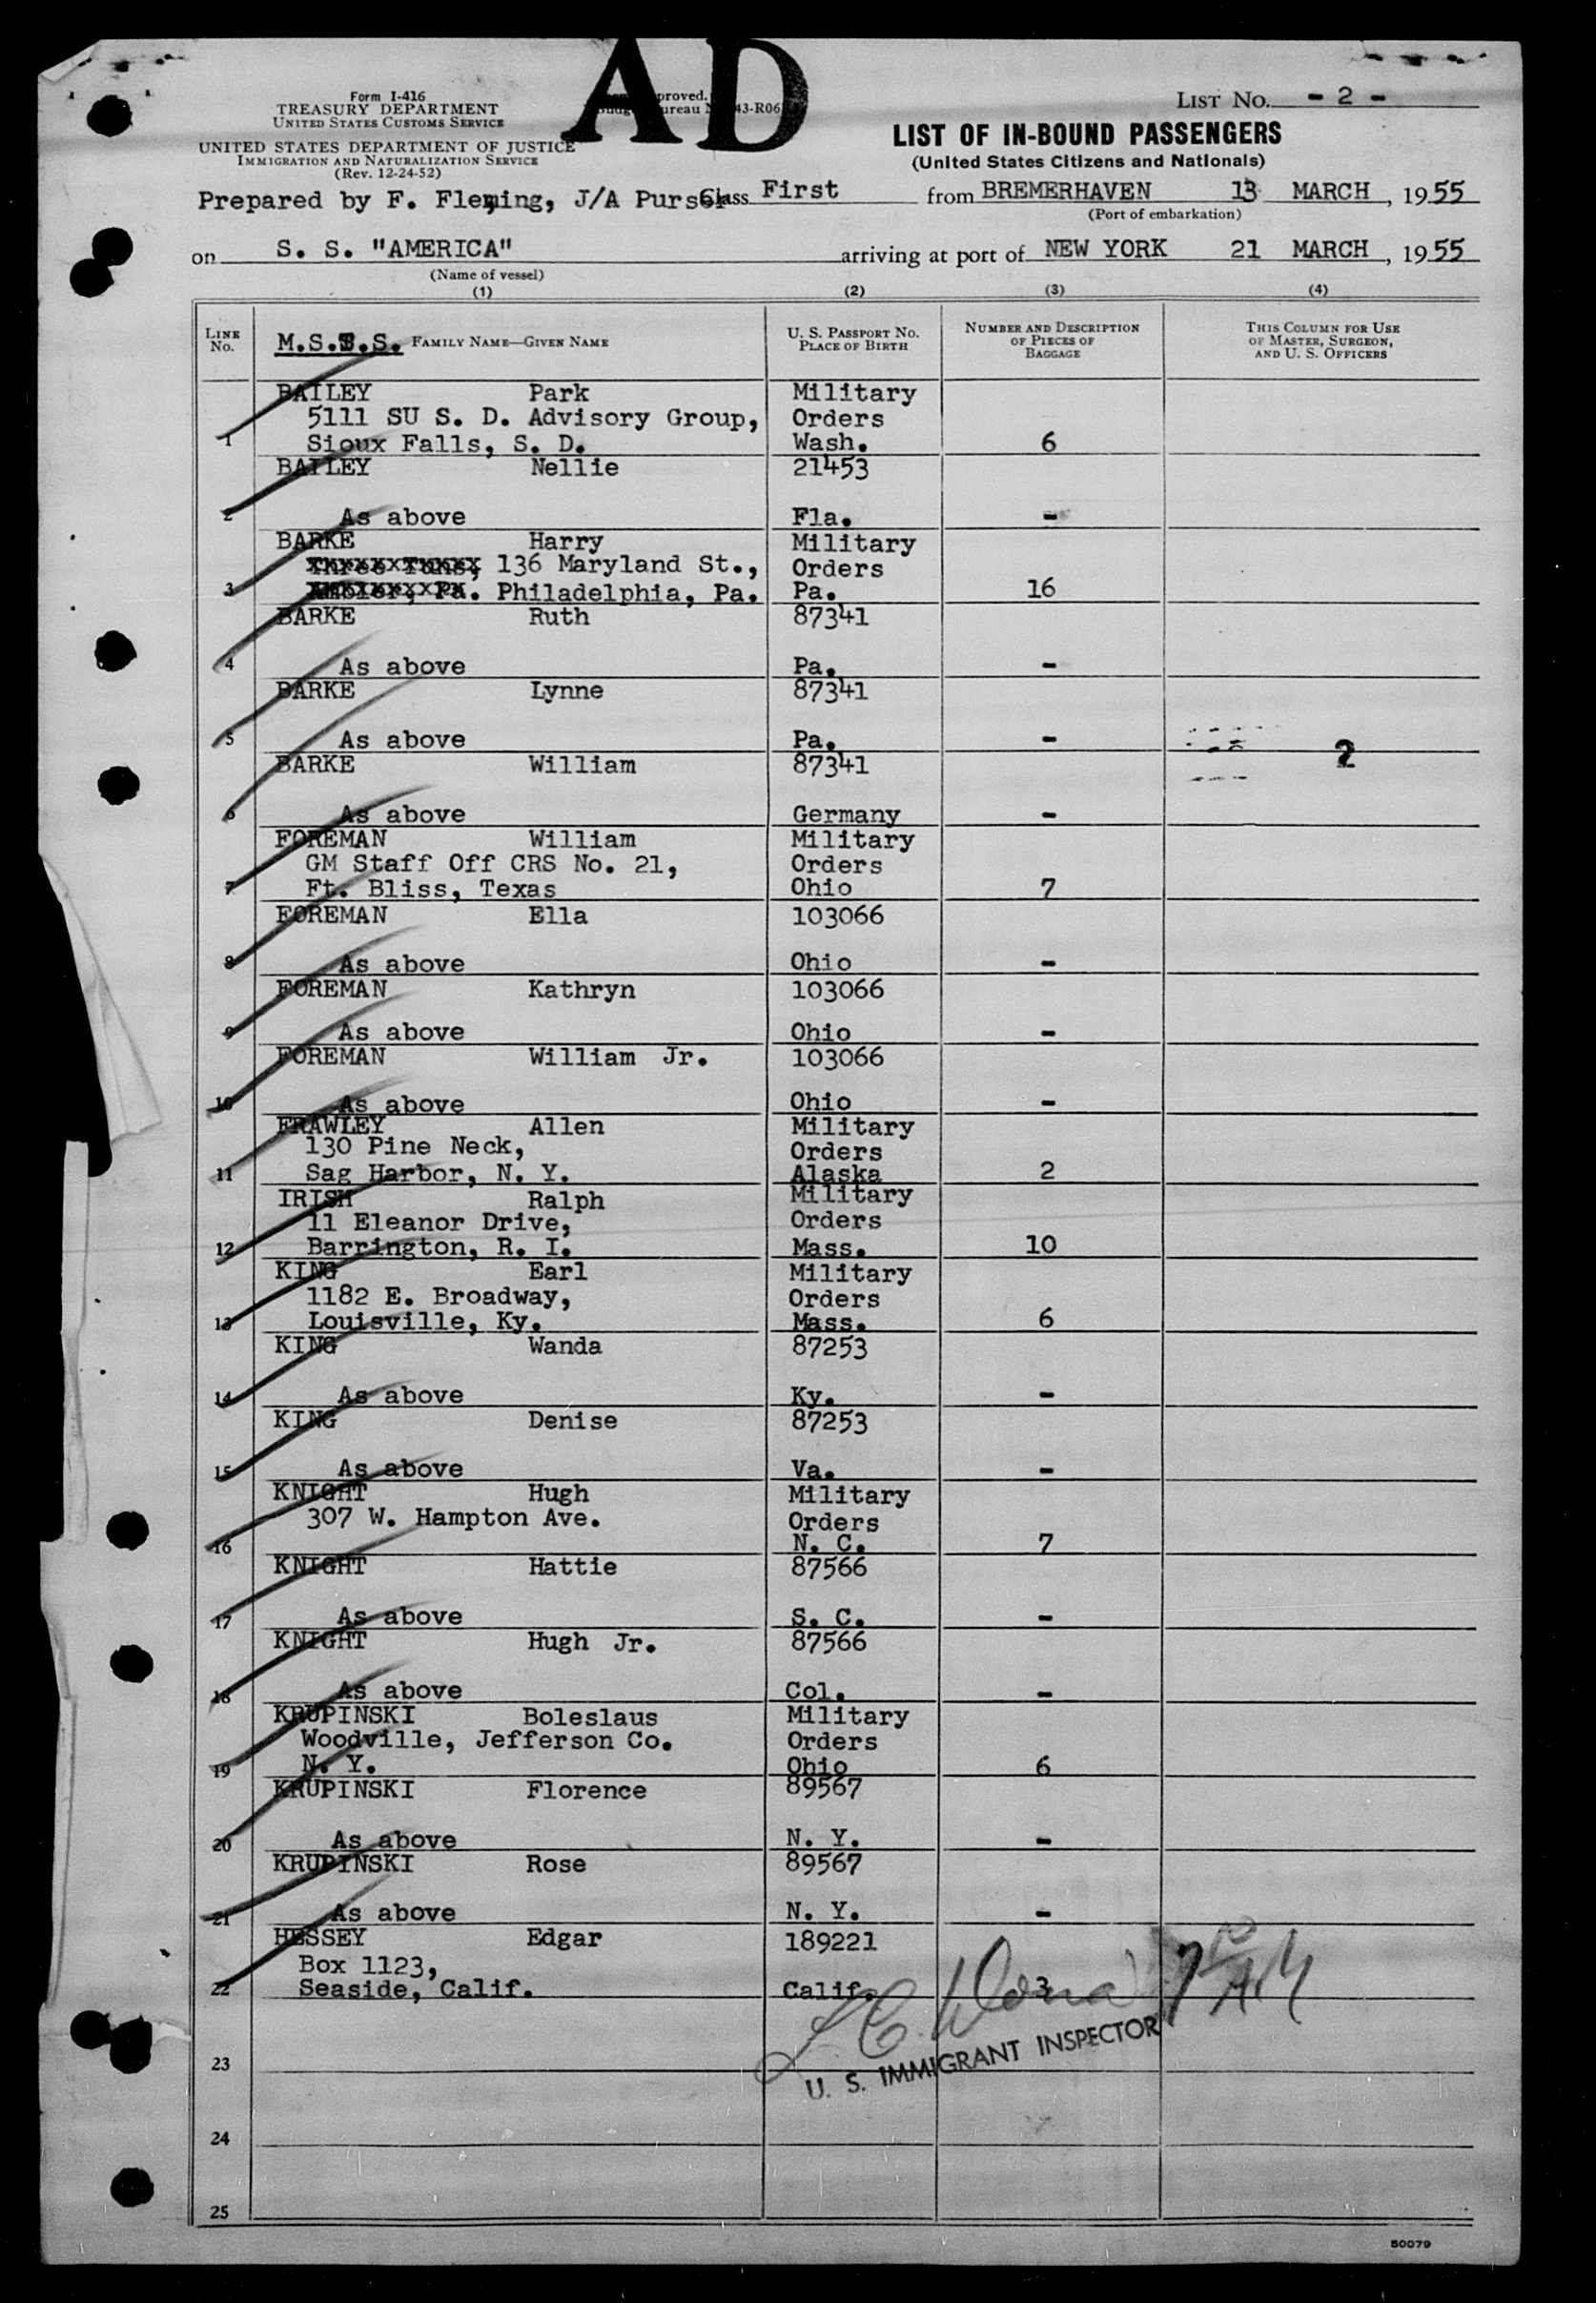 AD
Form I-416
TREASURY DEPARTMENT
UNITED STATES CUSTOMS SERVICE
UNITED STATES DEPARTMENT OF JUSTICE
IMMIGRATION AND NATURALIZATION SERVICE
(Rev. 12-24-52)
LIST NO. - 2 -
LIST OF IN-BOUND PASSENGERS
(United States Citizens and Nationals)
Prepared by F. Fleming, J/A Purser Class First from BREMERHAVEN 13 MARCH, 1955
(Port of embarkation)
on S. S. "AMERICA" arriving at port of NEW YORK 21 MARCH, 1955
(Name of vessel)
(1) (2) (3) (4)
LINE NO. M.S.T.S. FAMILY NAME—GIVEN NAME U. S. PASSPORT NO. PLACE OF BIRTH NUMBER AND DESCRIPTION OF PIECES OF BAGGAGE THIS COLUMN FOR USE OF MASTER, SURGEON, AND U. S. OFFICERS
BAILEY Park Military
5111 SU S. D. Advisory Group, Orders
1 Sioux Falls, S. D. Wash. 6
BAILEY Nellie 21453
2 As above Fla. -
BARKE Harry Military
136 Maryland St., Orders
3 Philadelphia, Pa. Pa. 16
BARKE Ruth 87341
4 As above Pa. -
BARKE Lynne 87341
5 As above Pa. - 2
BARKE William 87341
6 As above Germany -
FOREMAN William Military
GM Staff Off CRS No. 21, Orders
7 Ft. Bliss, Texas Ohio 7
FOREMAN Ella 103066
8 As above Ohio -
FOREMAN Kathryn 103066
9 As above Ohio -
FOREMAN William Jr. 103066
10 As above Ohio -
FRAWLEY Allen Military
130 Pine Neck, Orders
11 Sag Harbor, N. Y. Alaska 2
IRISH Ralph Military
11 Eleanor Drive, Orders
12 Barrington, R. I. Mass. 10
KING Earl Military
1182 E. Broadway, Orders
13 Louisville, Ky. Mass. 6
KING Wanda 87253
14 As above Ky. -
KING Denise 87253
15 As above Va. -
KNIGHT Hugh Military
307 W. Hampton Ave. Orders
16 N. C. 7
KNIGHT Hattie 87566
17 As above S. C. -
KNIGHT Hugh Jr. 87566
18 As above Col. -
KRUPINSKI Boleslaus Military
Woodville, Jefferson Co. Orders
19 N. Y. Ohio 6
KRUPINSKI Florence 89567
20 As above N. Y. -
KRUPINSKI Rose 89567
21 As above N. Y. -
HESSEY Edgar 189221
Box 1123,
22 Seaside, Calif. Calif. 3
U. S. IMMIGRANT INSPECTOR
23
24
25
50079